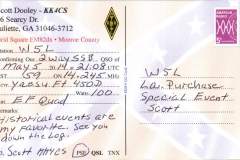 Scott Dooley - KK4CS
6 Searcy Dr.
Juliette, GA 31046-3712
Grid Square EM82dx • Monroe County
W5L
Confirming our 2 way SSB QSO of
May 5 14:21:08 UTC
59 on 14.245 MHz
Yaesu FT 450D
Watts 100
EF Quad
Historical events are
my favorite. See you
down the log.
Scott
PSE QSL TNX
W5L
La. Purchase
Special Event
Scott